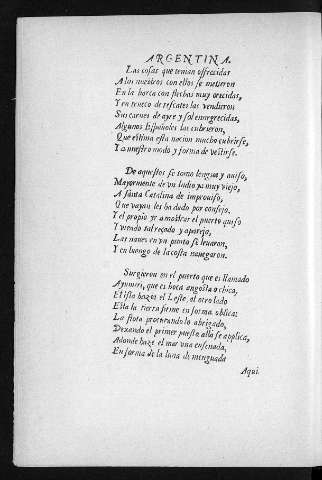 ARGENTINA.
Las cosas que tenian offrecidas
A los nuestros con ellos se metieron
En la barca con flechas muy crecidas,
Y en trueco de rescates las vendieron
Sus carnes de ayre y sol ennegrecidas,
Algunos Españoles las cubrieron,
Que estima esta nacion mucho cubrirse,
Y a nuestro modo y forma de vestirse.
De aquestos se tomo lengua y auiso,
Mayormente de vn Indio ya muy viejo,
A santa Catalina de improuiso,
Que vayan les ha dado por consejo.
Y el propio yr a mostrar el puerto quiso
Y viendo tal recado y aparejo,
Las naues en vn punto se leuaron,
Y en luengo de la costa nauegaron.
Surgieron en el puerto que es llamado
Ayumiri, que es boca angosta o chica,
El isto hazes el Leste, al otro lado
Esta la tierra firme en forma oblica:
La flota procurando lo abrigado,
Dexando el primer puesto alla se applica,
Adonde haze el mar vna ensenada,
En forma de la luna di menguada
Aqui.